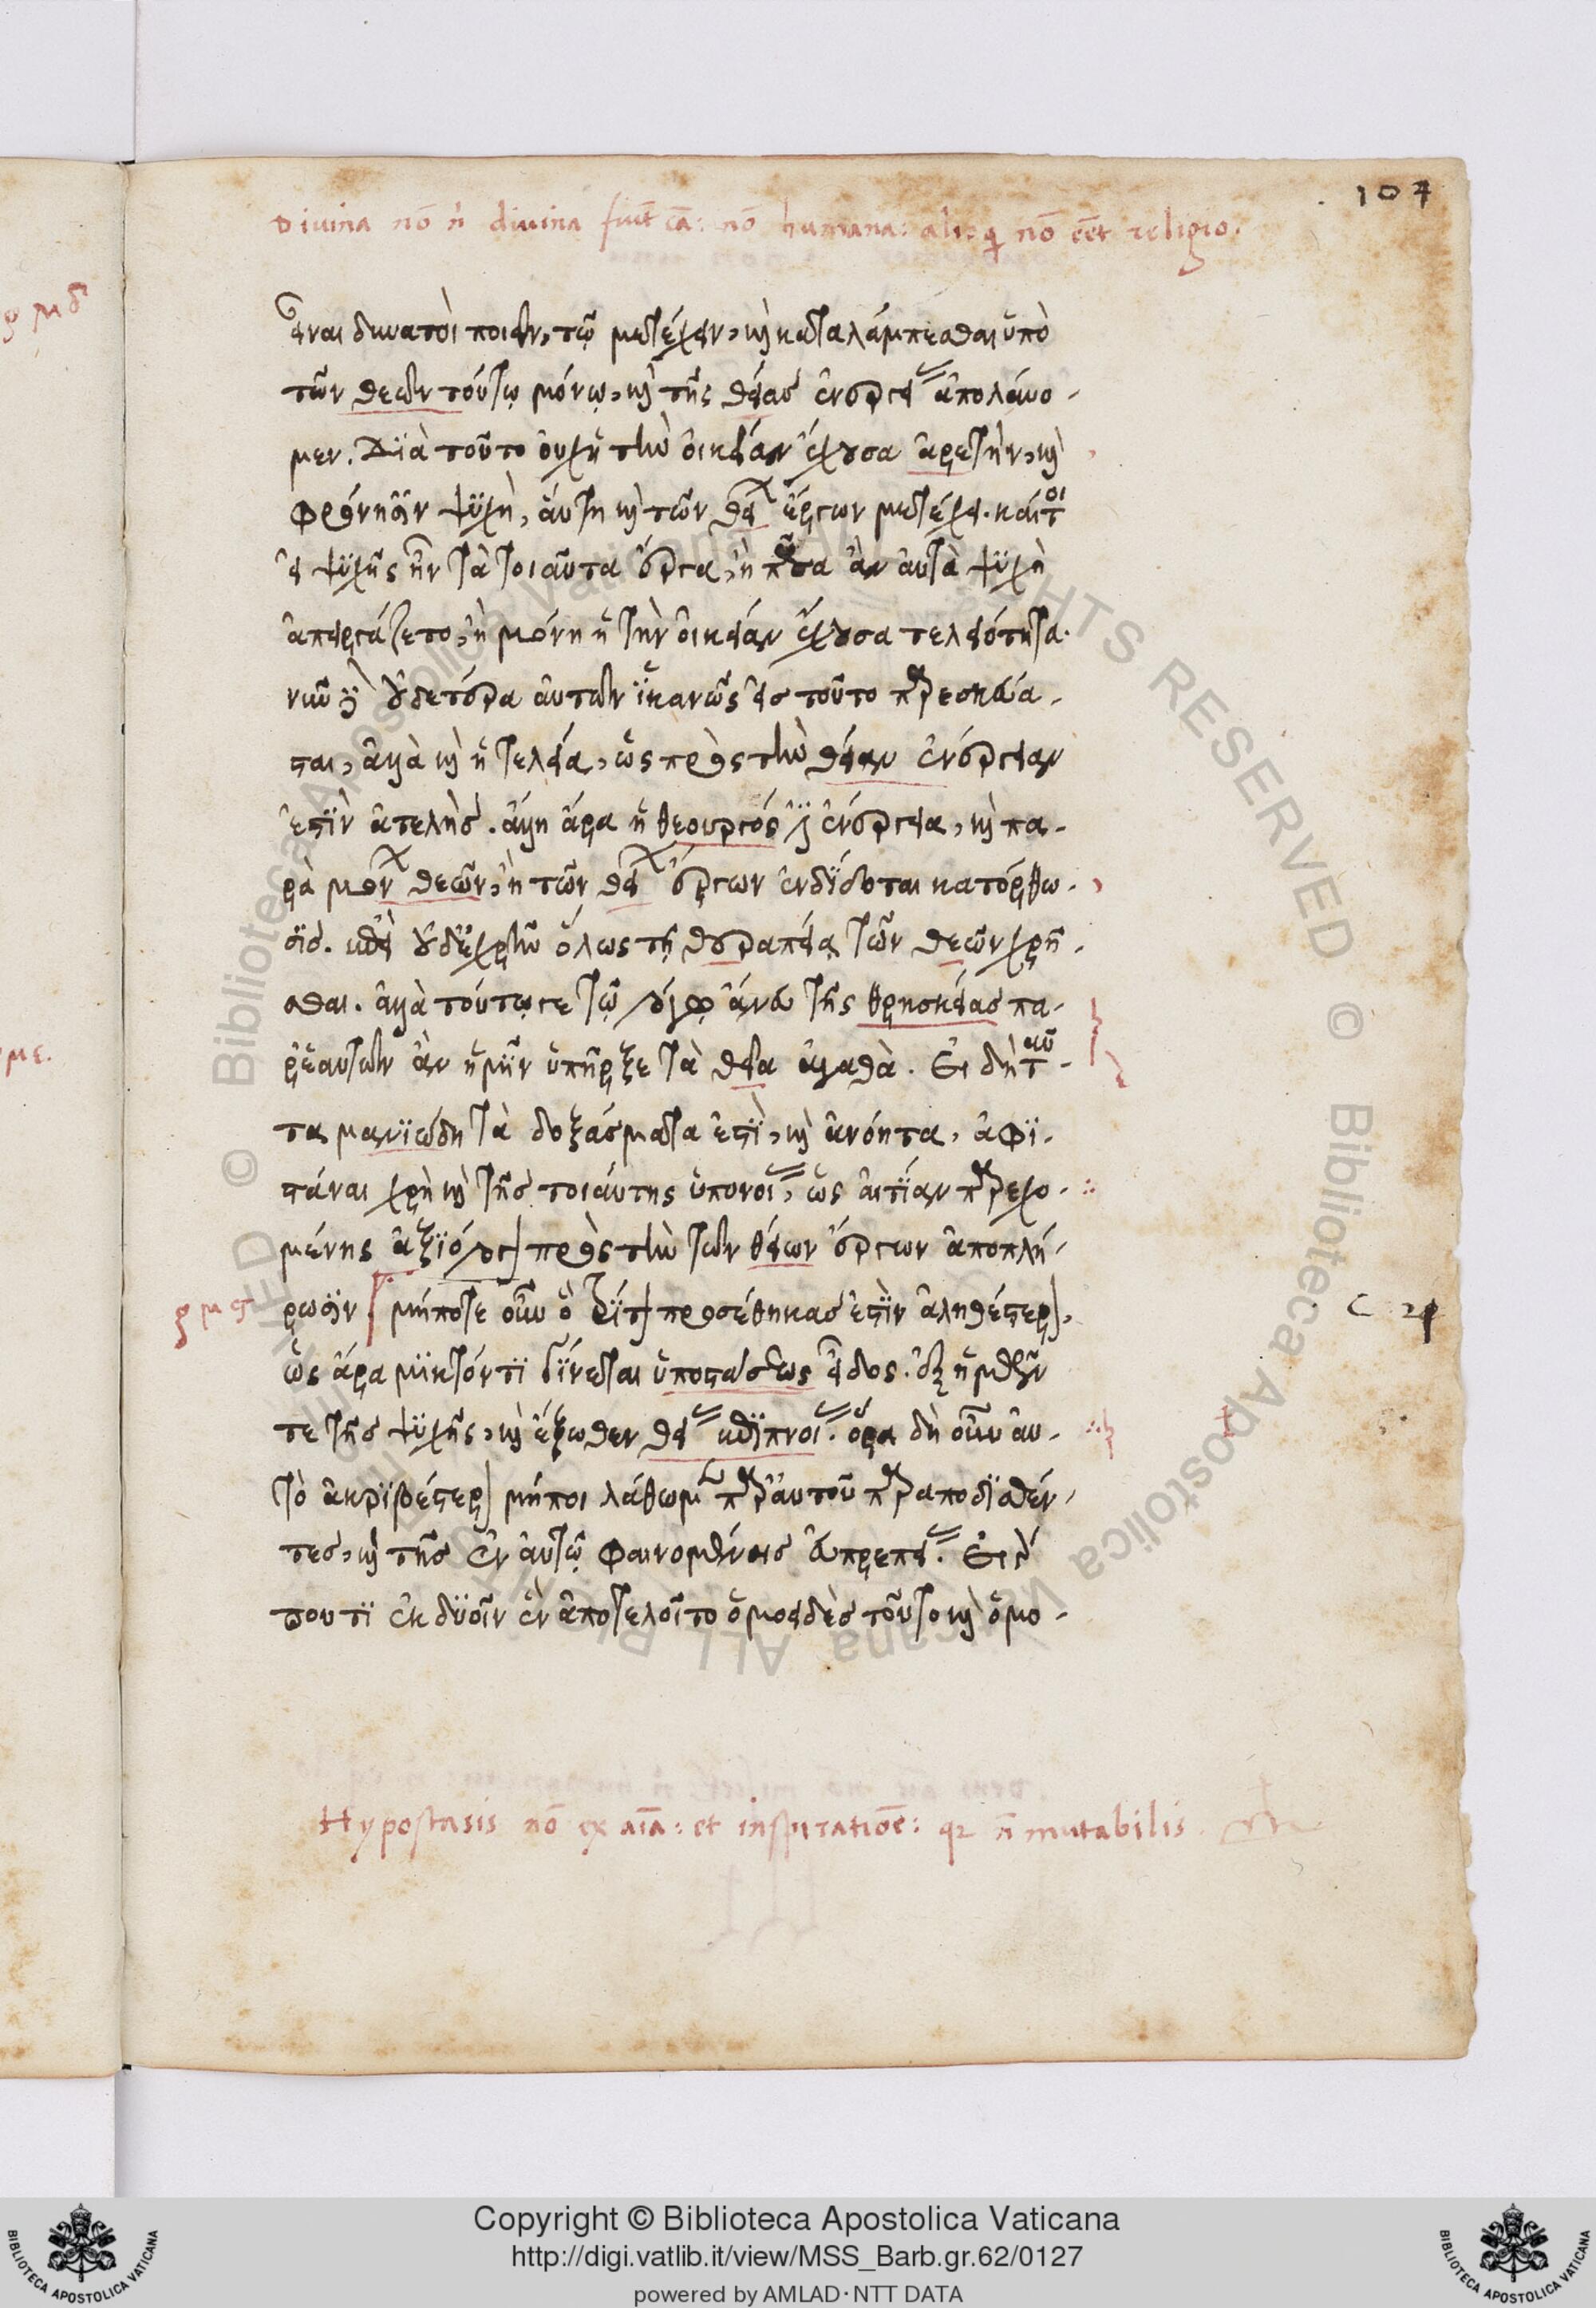 107
Divina nō n̄ divina fiūt cā: nō humana: alioqi nō eēt religio.
εἶναι δυνατοὶ ποιεῖν, τῷ μετέχειν, καὶ καταλάμπεσθαι ὑπὸ
τῶν θεῶν τούτῳ μόνῳ, καὶ τῆς θείας ἐνεργείας ἀπολαύο-
μεν. Διὰ τοῦτο οὐχ ἡ τὴν οἰκείαν ἔχουσα ἀρετὴν, καὶ
φρόνησιν ψυχὴ, αὕτη καὶ τῶν θείων ἔργων μετέχει. καίτοι
εἰ ψυχῆς ἦν τὰ τοιαῦτα ἔργα, ἢ πᾶσα ἂν αὐτὰ ψυχὴ
ἀπειργάζετο, ἢ μόνη ἡ τὴν οἰκείαν ἔχουσα τελειότητα.
νῦν δὲ οὐδετέρα αὐτῶν ἱκανῶς εἰς τοῦτο παρεσκεύα-
σται, ἀλλὰ καὶ ἡ τελεία, ὡς πρὸς τὴν θείαν ἐνέργειαν
ἐστὶν ἀτελής. ἄλλη ἄρα ἡ θεουργός ἐστιν ἐνέργεια, καὶ πα-
ρὰ μόνων θεῶν, ἡ τῶν θείων ἔργων ἐνδίδοται κατόρθω-
σις. ἐπεὶ οὐδὲ ἐχρῆν ὅλως τῇ θεραπείᾳ τῶν θεῶν χρῆ-
σθαι. ἀλλὰ τούτῳ γε τῷ λόγῳ ἄνευ τῆς θρησκείας πα-
ρ' ἑαυτῶν ἂν ἡμῖν ὑπῆρξε τὰ θεῖα ἀγαθὰ. Εἰ δὴ ταῦ-
τα μανιώδη τὰ δοξάσματα ἐστὶ, καὶ ἀνόητα, ἀφι-
στάναι χρὴ καὶ τῆς τοιαύτης ὑπονοίας, ὡς αἰτίαν παρεχο-
μένης ἀξιόλογον πρὸς τὴν τῶν θείων ἔργων ἀποπλή-
ρωσιν μήποτε οὖν ὃ τρίτον προσέθηκας ἐστὶν ἀληθέστερον,
ὡς ἄρα μικτόν τι γίνεται ὑποστάσεως εἶδος. ἐξ ἡμῶν
τε τῆς ψυχῆς, καὶ ἔξωθεν θείας ἐπιπνοίας. ὅρα δὴ οὖν αὐ-
τὸ ἀκριβέστερον μήποι λάθωμεν παρ' αὐτοῦ παραποδισθέν-
τες, καὶ τῆς ἐν αὐτῷ φαινομένης εὐπρεπείας. Εἰ γάρ
που τι ἐκ δυοῖν ἓν ἀποτελοῖτο ὁμοειδὲς τοῦτο καὶ ὁμο-
Hypostasis nō ex aīa: et inspiratiōe: qz n̄ mutabilis.
Copyright © Biblioteca Apostolica Vaticana
http://digi.vatlib.it/view/MSS_Barb.gr.62/0127
powered by AMLAD·NTT DATA
BIBLIOTECA APOSTOLICA VATICANA
BIBLIOTECA APOSTOLICA VATICANA